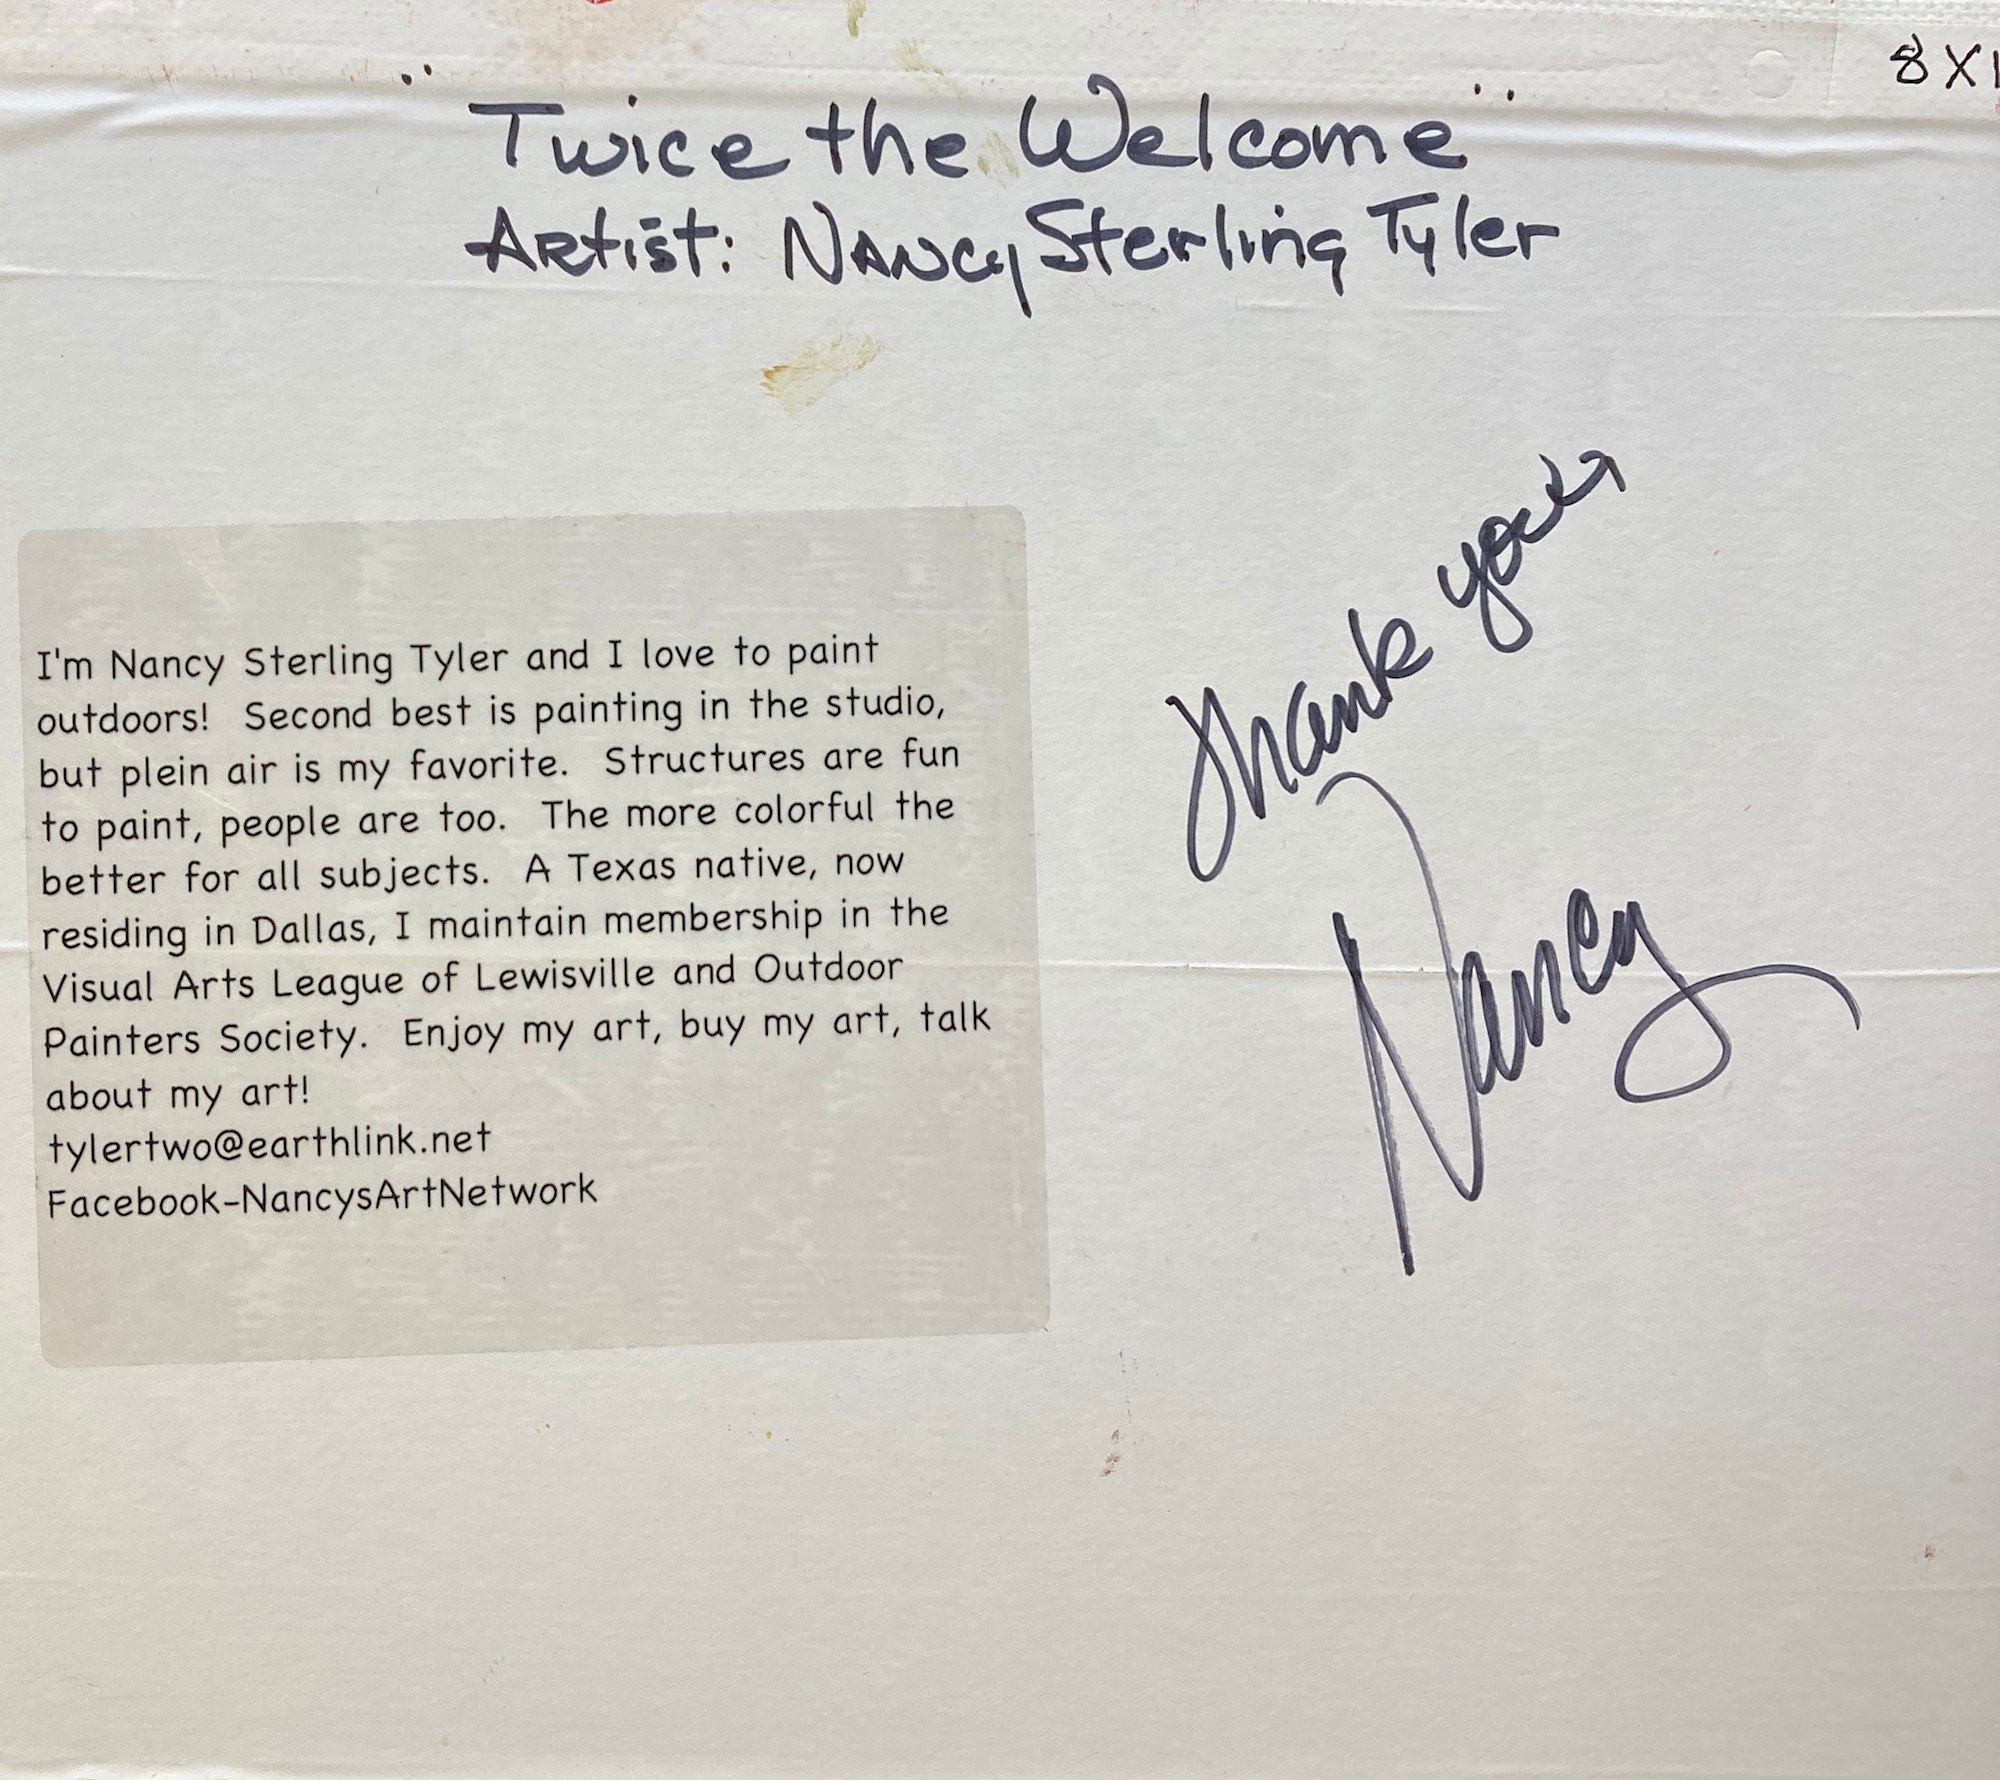 8X1
"Twice the Welcome"
Artist: Nancy Sterling Tyler
I'm Nancy Sterling Tyler and I love to paint
outdoors! Second best is painting in the studio,
but plein air is my favorite. Structures are fun
to paint, people are too. The more colorful the
better for all subjects. A Texas native, now
residing in Dallas, I maintain membership in the
Visual Arts League of Lewisville and Outdoor
Painters Society. Enjoy my art, buy my art, talk
about my art!
tylertwo@earthlink.net
Facebook-NancysArtNetwork
Thank you,
Nancy